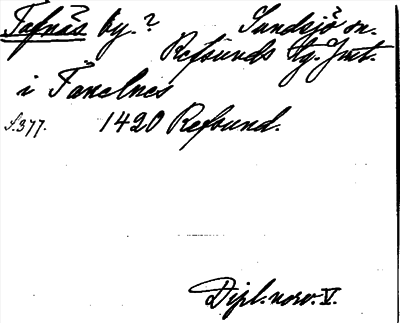 Tafnäs by.? Sundsjö sn.
Refsunds tg. Jmt.
i Tanelnes
S. 377. 1420 Refsund.
Dipl. norv. V.